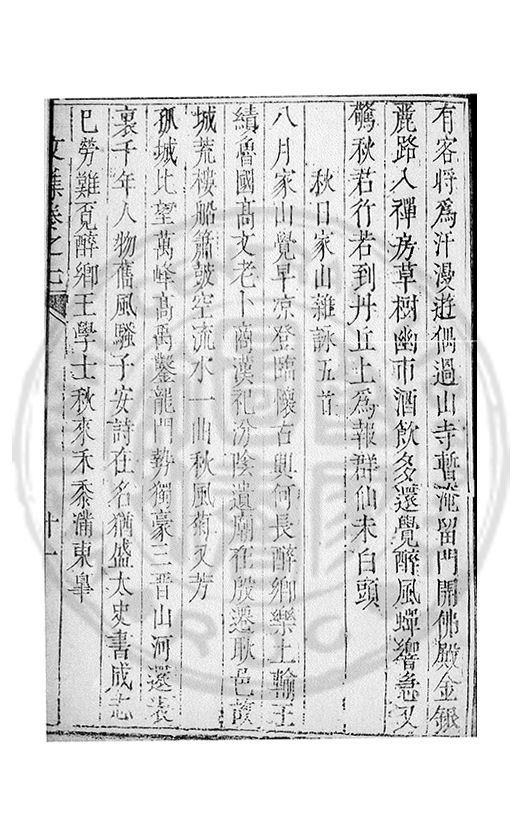 有客將爲汗漫遊偶過山寺暫淹留門開佛殿金銀
麗路入禪房草樹幽市酒飲多還覺醉風蟬響急又
驚秋君行若到丹丘上爲報群仙未白頭
秋日家山雜詠五首
八月家山覺早凉登臨懷古興何長醉鄉樂土輸王
績魯國高文老卜商漢祀汾陰遺廟在殷遷耿邑故
城荒樓船簫鼓空流水一曲秋風菊又芳
孤城北望萬峰高禹鑿龍門勢獨豪三晋山河還表
裏千年人物舊風騷子安詩在名猶盛太史書成志
巳勞難覓醉鄉王學士秋來禾黍滿東臯
文集卷之七
十一